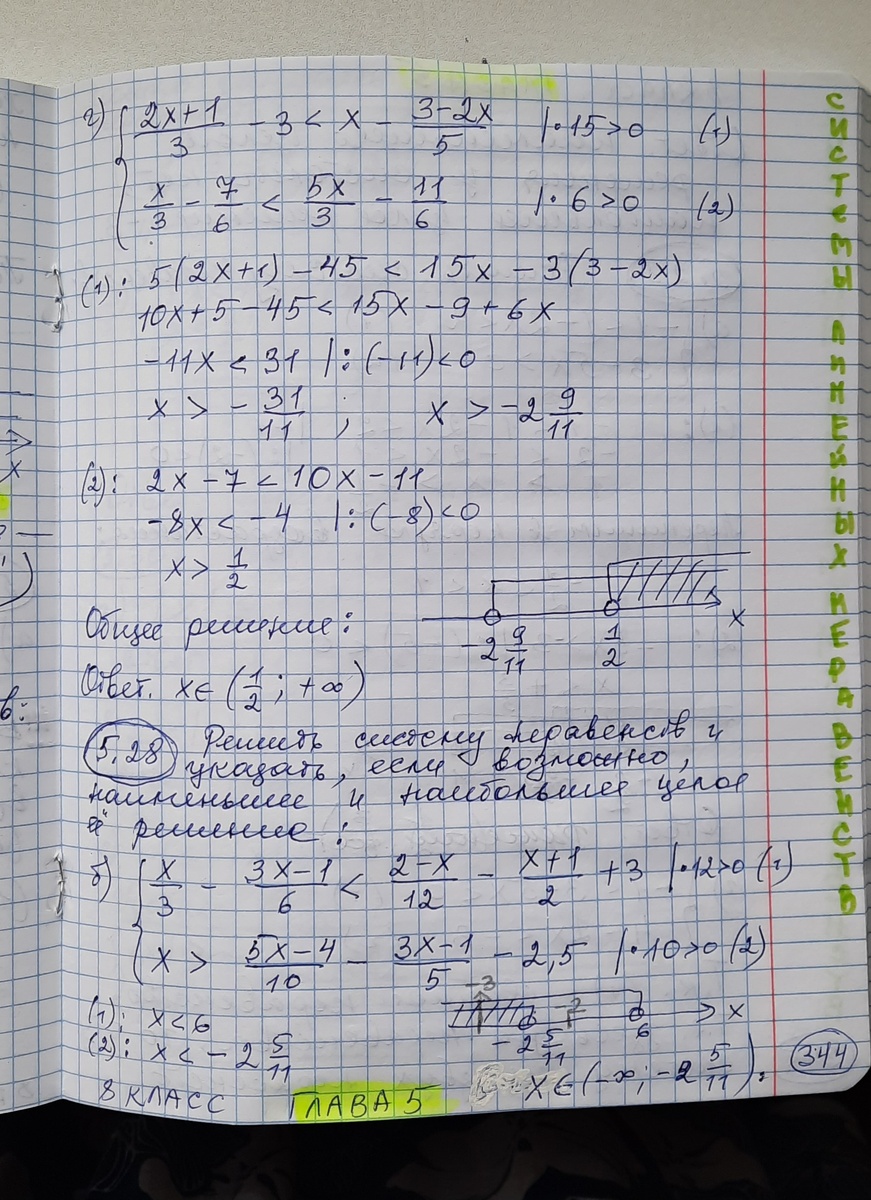 г) { (2x+1)/3 − 3 < x − (3−2x)/5 |·15>0 (1)
x/3 − 7/6 < 5x/3 − 11/6 |·6>0 (2)
(1): 5(2x+1) − 45 < 15x − 3(3−2x)
10x+5−45 < 15x − 9 + 6x
−11x < 31 |:(−11)<0
x > −31/11 ; x > −2 9/11
(2): 2x − 7 < 10x − 11
−8x < −4 |:(−8)<0
x > 1/2
Общее решение:
−2 9/11 1/2 x
Ответ. x∈(1/2; +∞)
5.28 Решить систему неравенств и
указать, если возможно,
наименьшее и наибольшее целое
решение:
б) { x/3 − (3x−1)/6 < (2−x)/12 − (x+1)/2 + 3 |·12>0 (1)
x > (5x−4)/10 − (3x−1)/5 − 2,5 |·10>0 (2)
(1): x<6
(2): x < −2 5/11
−3 −2 5/11 −2 6 x
x∈(−∞; −2 5/11).
344
8 КЛАСС ГЛАВА 5
СИСТЕМЫ ЛИНЕЙНЫХ НЕРАВЕНСТВ